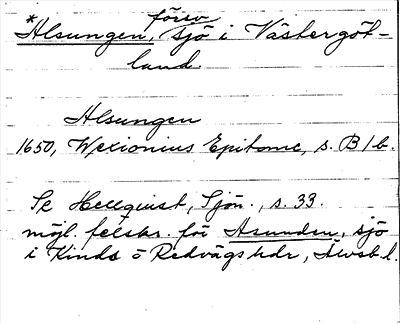 försv.
*Alsungen, sjö i Västergöt-
land.
Alsungen
1650, Wexionius Epitome, s. B1b.
Se Hellquist, Sjön., s. 33.
möjl. felskr. för Asunden, sjö
i Kinds o Redvägs hdr, Älvsb. l.